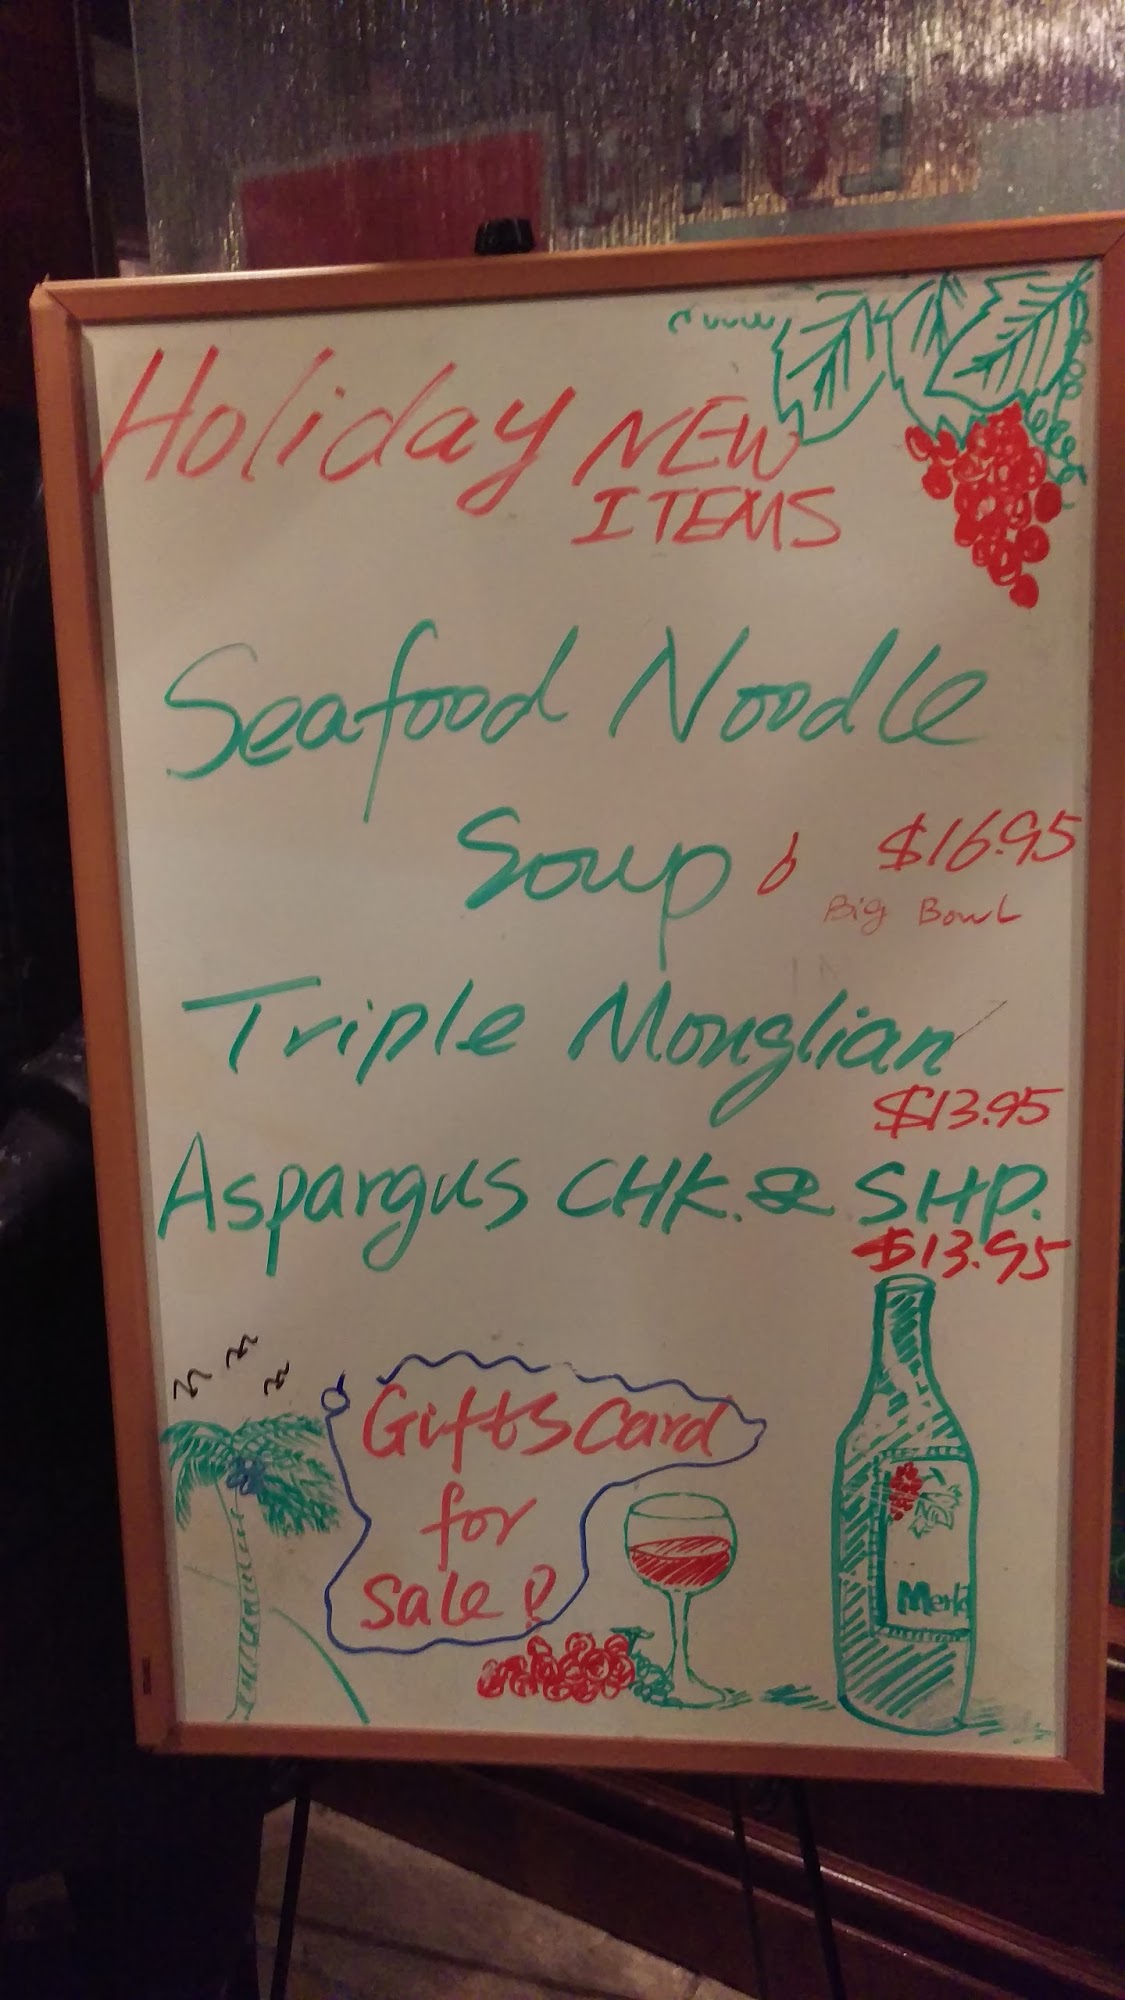 Holiday NEW
ITEMS
Seafood Noodle
Soup $16.95
Big Bowl
Triple Monglian
$13.95
Aspargus CHK. & SHP.
$13.95
Gifts Card
for
Sale!